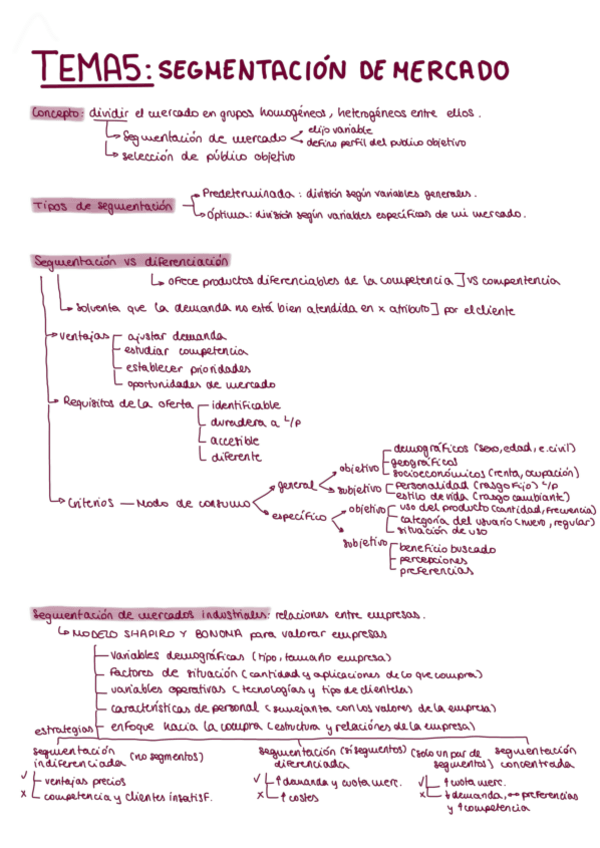 TEMA5: SEGMENTACIÓN DE MERCADO
Concepto: dividir el mercado en grupos homogéneos, heterogéneos entre ellos.
Segmentación de mercado
elijo variable
defino perfil del publico objetivo
selección de público objetivo
Tipos de segmentación
Predeterminada: división según variables generales.
Óptima: división según variables específicas de mi mercado.
Segmentación vs diferenciación
ofrece productos diferenciables de la competencia ] VS compentencia
solventa que la demanda no está bien atendida en x atributo ] por el cliente
ventajas
ajustar demanda
estudiar competencia
establecer prioridades
oportunidades de mercado
Requisitos de la oferta
identificable
duradera a L/P
accetible
diferente
Criterios — Modo de consumo
general
objetivo
demográficos (sexo, edad, e.civil)
geográficos
socioeconómicos (renta, ocupación)
subjetivo
personalidad (rasgo fijo) L/P
estilo de vida (rasgo cambiante)
específico
objetivo
uso del producto (cantidad, frecuencia)
categoría del usuario (nuevo, regular)
situación de uso
subjetivo
beneficio buscado
percepciones
preferencias
Segmentación de mercados industriales: relaciones entre empresas.
MODELO SHAPIRO Y BONOMA para valorar empresas
variables demográficas (tipo, tamaño empresa)
Factores de situación (cantidad y aplicaciones de lo que compra)
variables operativas (tecnologías y tipo de clientela)
características de personal (semejanta con los valores de la empresa)
enfoque hacia la compra (estructura y relaciones de la empresa)
estrategias
segmentación indiferenciada (no segmentos)
✓ ventajas precios
x competencia y clientes insatisf.
segmentación diferenciada (sí segmentos)
✓ ↑ demanda y cuota merc.
x ↑ costes
(solo un par de segmentos) segmentación concentrada
✓ ↑ cuota merc.
x ↓ demanda, ↔ preferencias y ↑ competencia